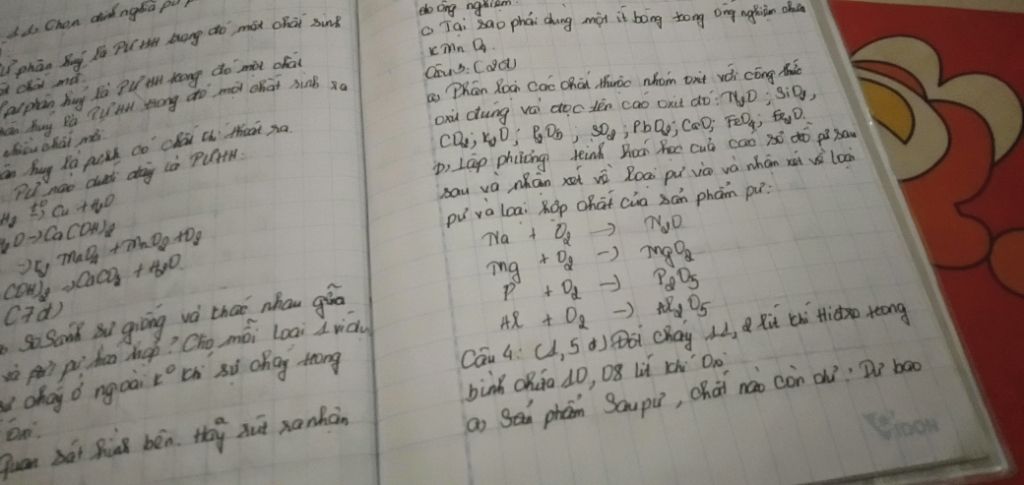 phân huỷ là PƯHH trong đó một chất sinh
phân huỷ là PƯ HH trong đó một chất
huỷ là PƯHH trong đó một chất sinh ra
nhiều chất mới
huỷ là pưhh có chất khí thoát ra.
PƯ nào dưới đây là PƯHH:
Cu + H2O
Ca(OH)2
MnO4 + MnO2 + O2
CaCO3 + H2O
So sánh sự giống và khác nhau giữa
pư hoá hợp? Cho mỗi loại 1 ví dụ
cháy ở ngoài k° khí sự cháy trong
Quan sát hình bên. Hãy rút ra nhận
do ống nghiệm.
c) Tại sao phải dùng một ít bông trong ống nghiệm chứa
KMnO4
Câu 3: (
a) Phân loại các chất thuộc nhóm oxit với công thức
oxit đúng và đọc tên các oxit đó: N2O; SiO2,
CO2; K2O; P2O5; SO2; PbO2; CaO; FeO3; Fe2O.
b) Lập phương trình hoá học của các sơ đồ pư sau
sau và nhận xét về loại pư và và nhận xét về loại
pư và loại hợp chất của sản phẩm pư:
Na + O2 → N2O
Mg + O2 → MgO2
P + O2 → P2O5
Al + O2 → Al2O5
Câu 4: (1,5 đ) Đốt cháy 11,2 lít khí Hiđro trong
bình chứa 10,08 lít khí Oxi
a) Sau phẩm sau pư, chất nào còn dư? Dư bao